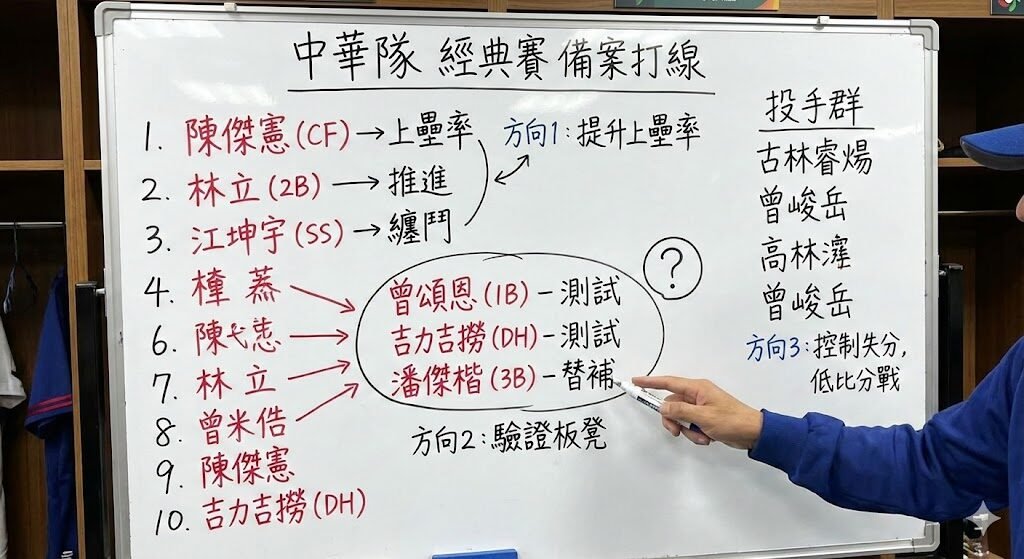 中華隊 經典賽 備案打線
1. 陳傑憲(CF)→上壘率
方向1:提升上壘率
2. 林立(2B)→推進
3. 江坤宇(SS)→纏鬥
4.
6. 陳
7. 林立
8. 曾米
9. 陳傑憲
10. 吉力吉撈(DH)
?
曾頌恩(1B)-測試
吉力吉撈(DH)-測試
潘傑楷(3B)-替補
方向2:驗證板凳
投手群
古林睿煬
曾峻岳
高林
曾峻岳
方向3:控制失分,
低比分戰